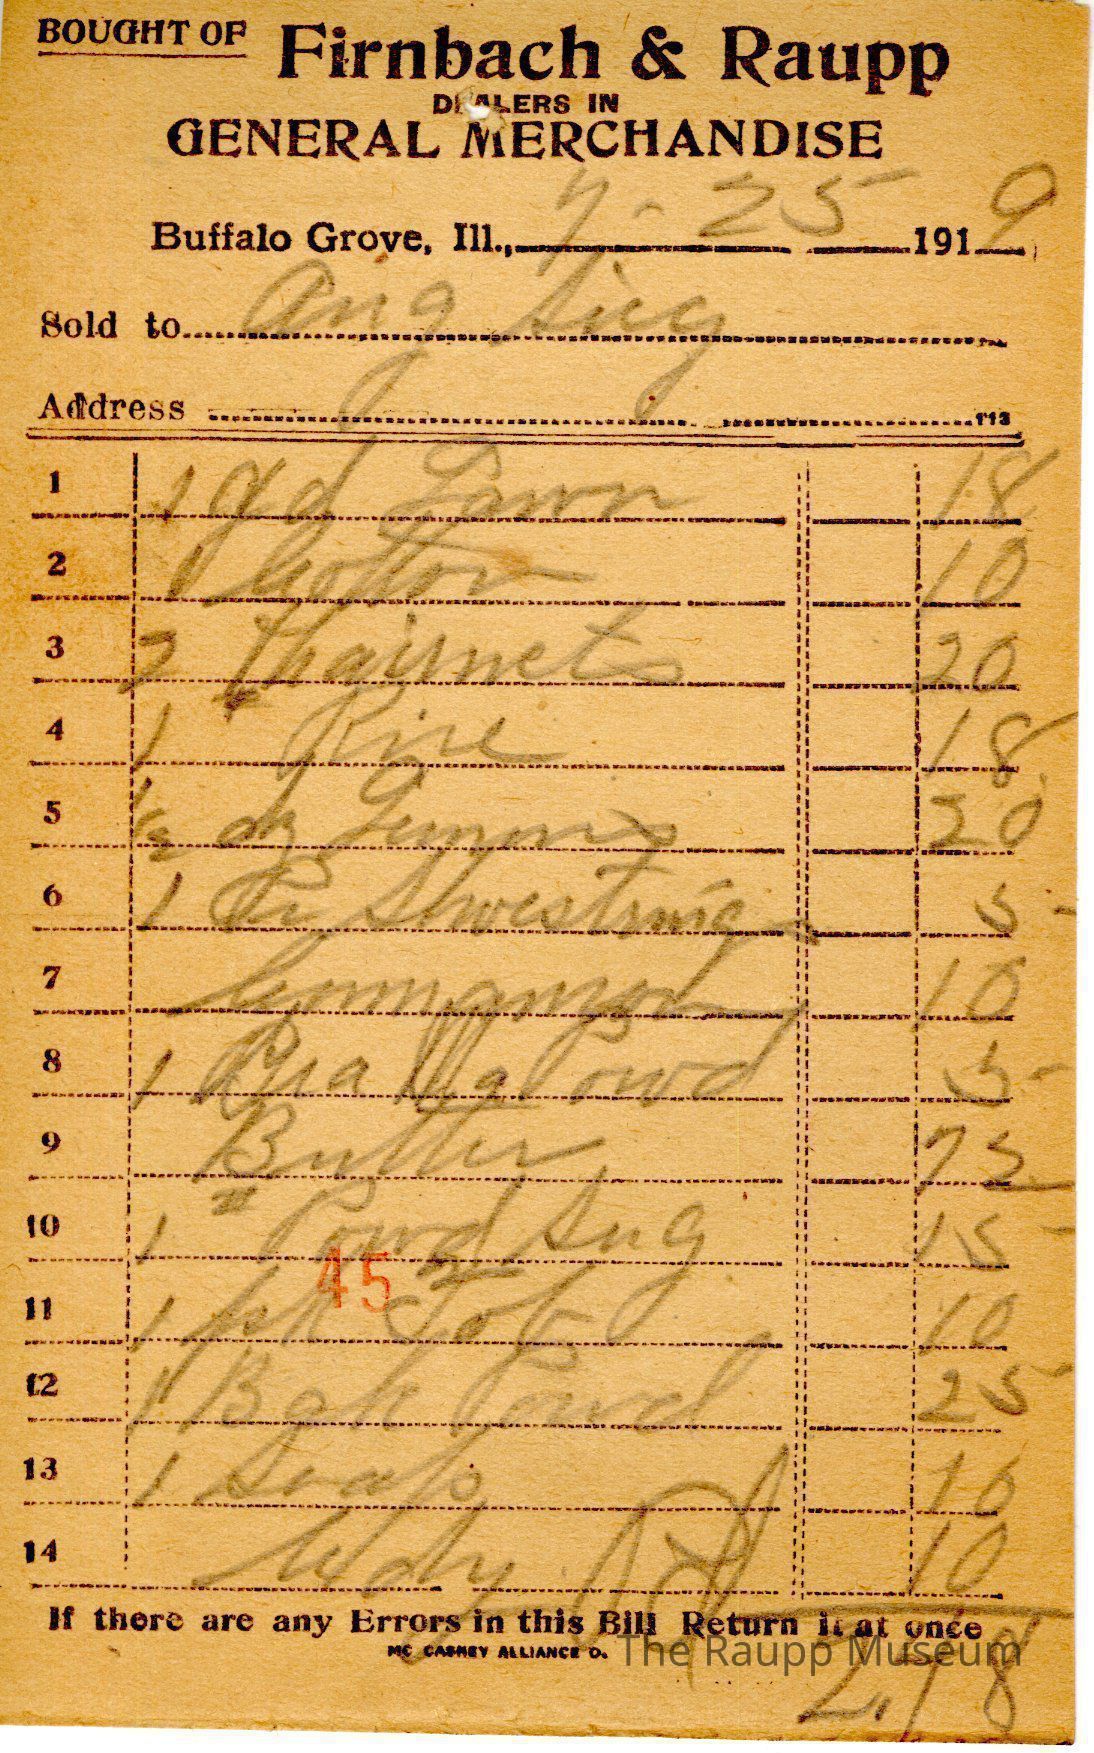 BOUGHT OF Firnbach & Raupp
DEALERS IN
GENERAL MERCHANDISE
Buffalo Grove, Ill., 7-25- 1919
Sold to Aug Sieg
Address 113
1 1 yd Lawn 18
2 1 Cotton 10
3 2 Hairnets 20
4 1 # Rice 18
5 1/2 dz Lemons 20
6 1 Pr Shoestring 5-
7 Connamon 10
8 1 Powd 5-
9 Butter 75
10 1 " Powd Sug 15-
45
11 1 pk Tob 10
12 1 Bak Powd 25-
13 1 Soap 10
14 10
If there are any Errors in this Bill Return it at once
MC CASKEY ALLIANCE O.
The Raupp Museum